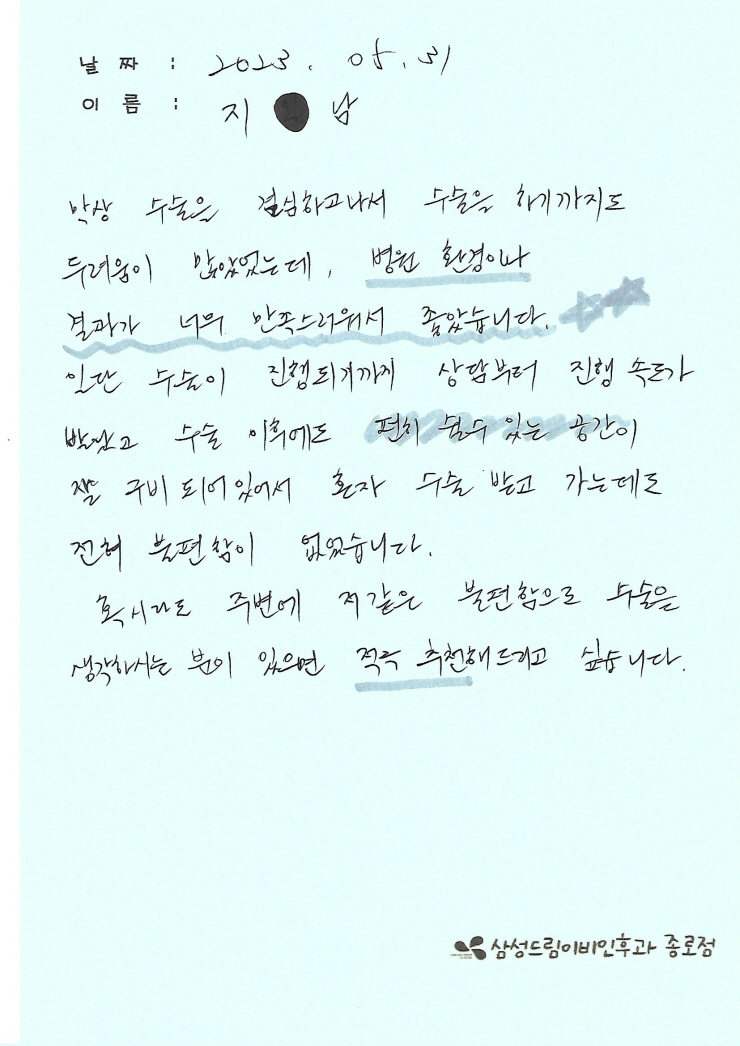 날 짜 : 2023. 05. 31
이 름 : 지 남
막상 수술은 결심하고나서 수술을 하기까지도
두려움이 많았었는데, 병원 환경이나
결과가 너무 만족스러워서 좋았습니다.
일단 수술이 진행되기까지 상담부터 진행 속도가
빨랐고 수술 이후에도 편히 쉴수 있는 공간이
잘 구비 되어있어서 혼자 수술 받고 가는데도
전혀 불편함이 없었습니다.
혹시라도 주변에 저같은 불편함으로 수술을
생각하시는 분이 있으면 적극 추천해드리고 싶습니다.
삼성드림이비인후과 종로점